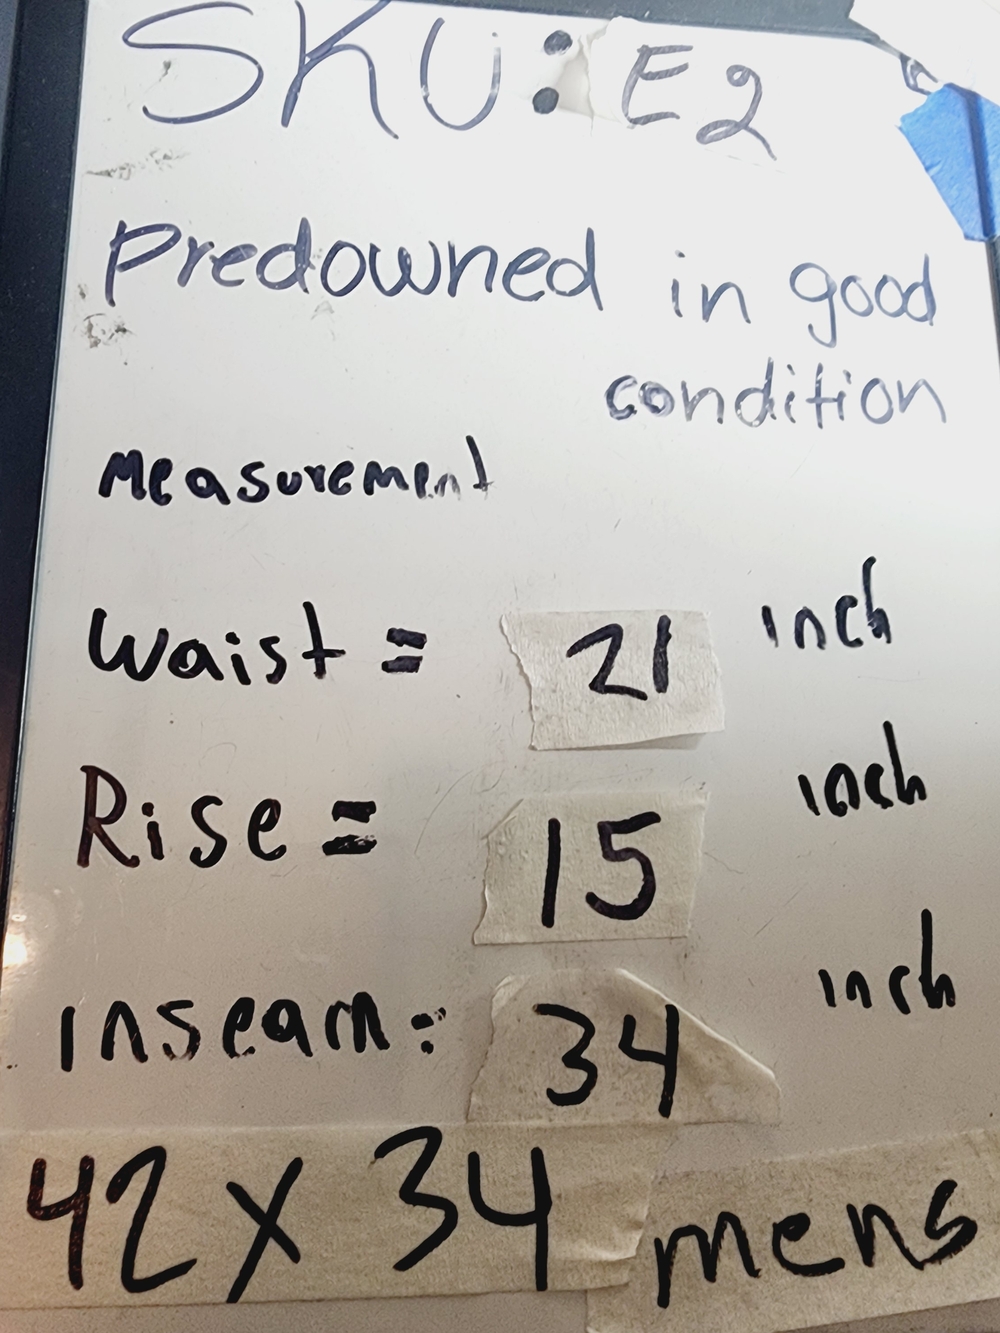 SKU: E2
Predowned in good
condition
Measurement
Waist = 21 inch
Rise = 15 inch
inseam: 34 inch
42 x 34 mens